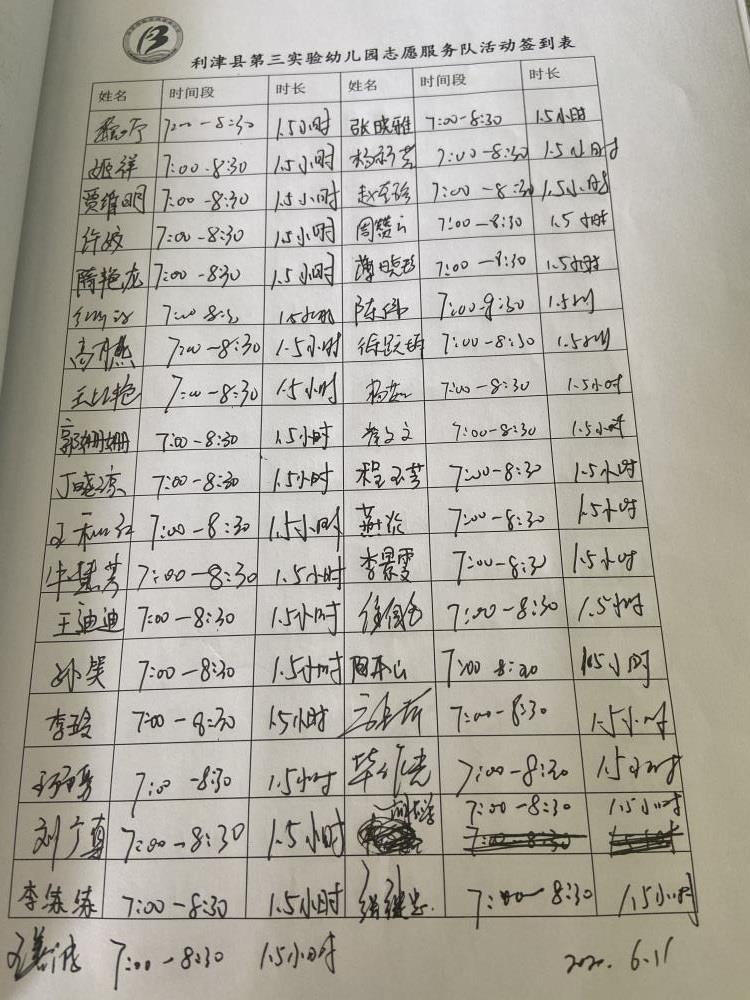 利津县第三实验幼儿园志愿服务队活动签到表
姓名 时间段 时长 姓名 时间段 时长
7:00-8:30 1.5小时 张晓雅 7:00-8:30 1.5小时
姬祥 7:00-8:30 1.5小时 7:00-8:30 1.5小时
贾维明 7:00-8:30 1.5小时 7:00-8:30 1.5小时
许姣 7:00-8:30 1.5小时 周赞 7:00-8:30 1.5小时
隋艳龙 7:00-8:30 1.5小时 薄晓彤 7:00-8:30 1.5小时
7:00-8:3 1.5小时 陈伟 7:00-8:30 1.5小时
高丹燕 7:00-8:30 1.5小时 7:00-8:30 1.5小时
7:00-8:30 1.5小时 7:00-8:30 1.5小时
郭姗姗 7:00-8:30 1.5小时 7:00-8:30 1.5小时
丁晓凉 7:00-8:30 1.5小时 程玉芳 7:00-8:30 1.5小时
7:00-8:30 1.5小时 7:00-8:30 1.5小时
牛慧芳 7:00-8:30 1.5小时 李景雯 7:00-8:30 1.5小时
王迪迪 7:00-8:30 1.5小时 7:00-8:30 1.5小时
孙笑 7:00-8:30 1.5小时 7:00 8:30 1.5小时
李玲 7:00-8:30 1.5小时 7:00-8:30 1.5小时
7:00-8:30 1.5小时 7:00-8:30 1.5小时
刘广真 7:00-8:30 1.5小时 7:00-8:30 1.5小时
李练练 7:00-8:30 1.5小时 7:00-8:30 1.5小时
7:00-8:30 1.5小时 2020.6.11